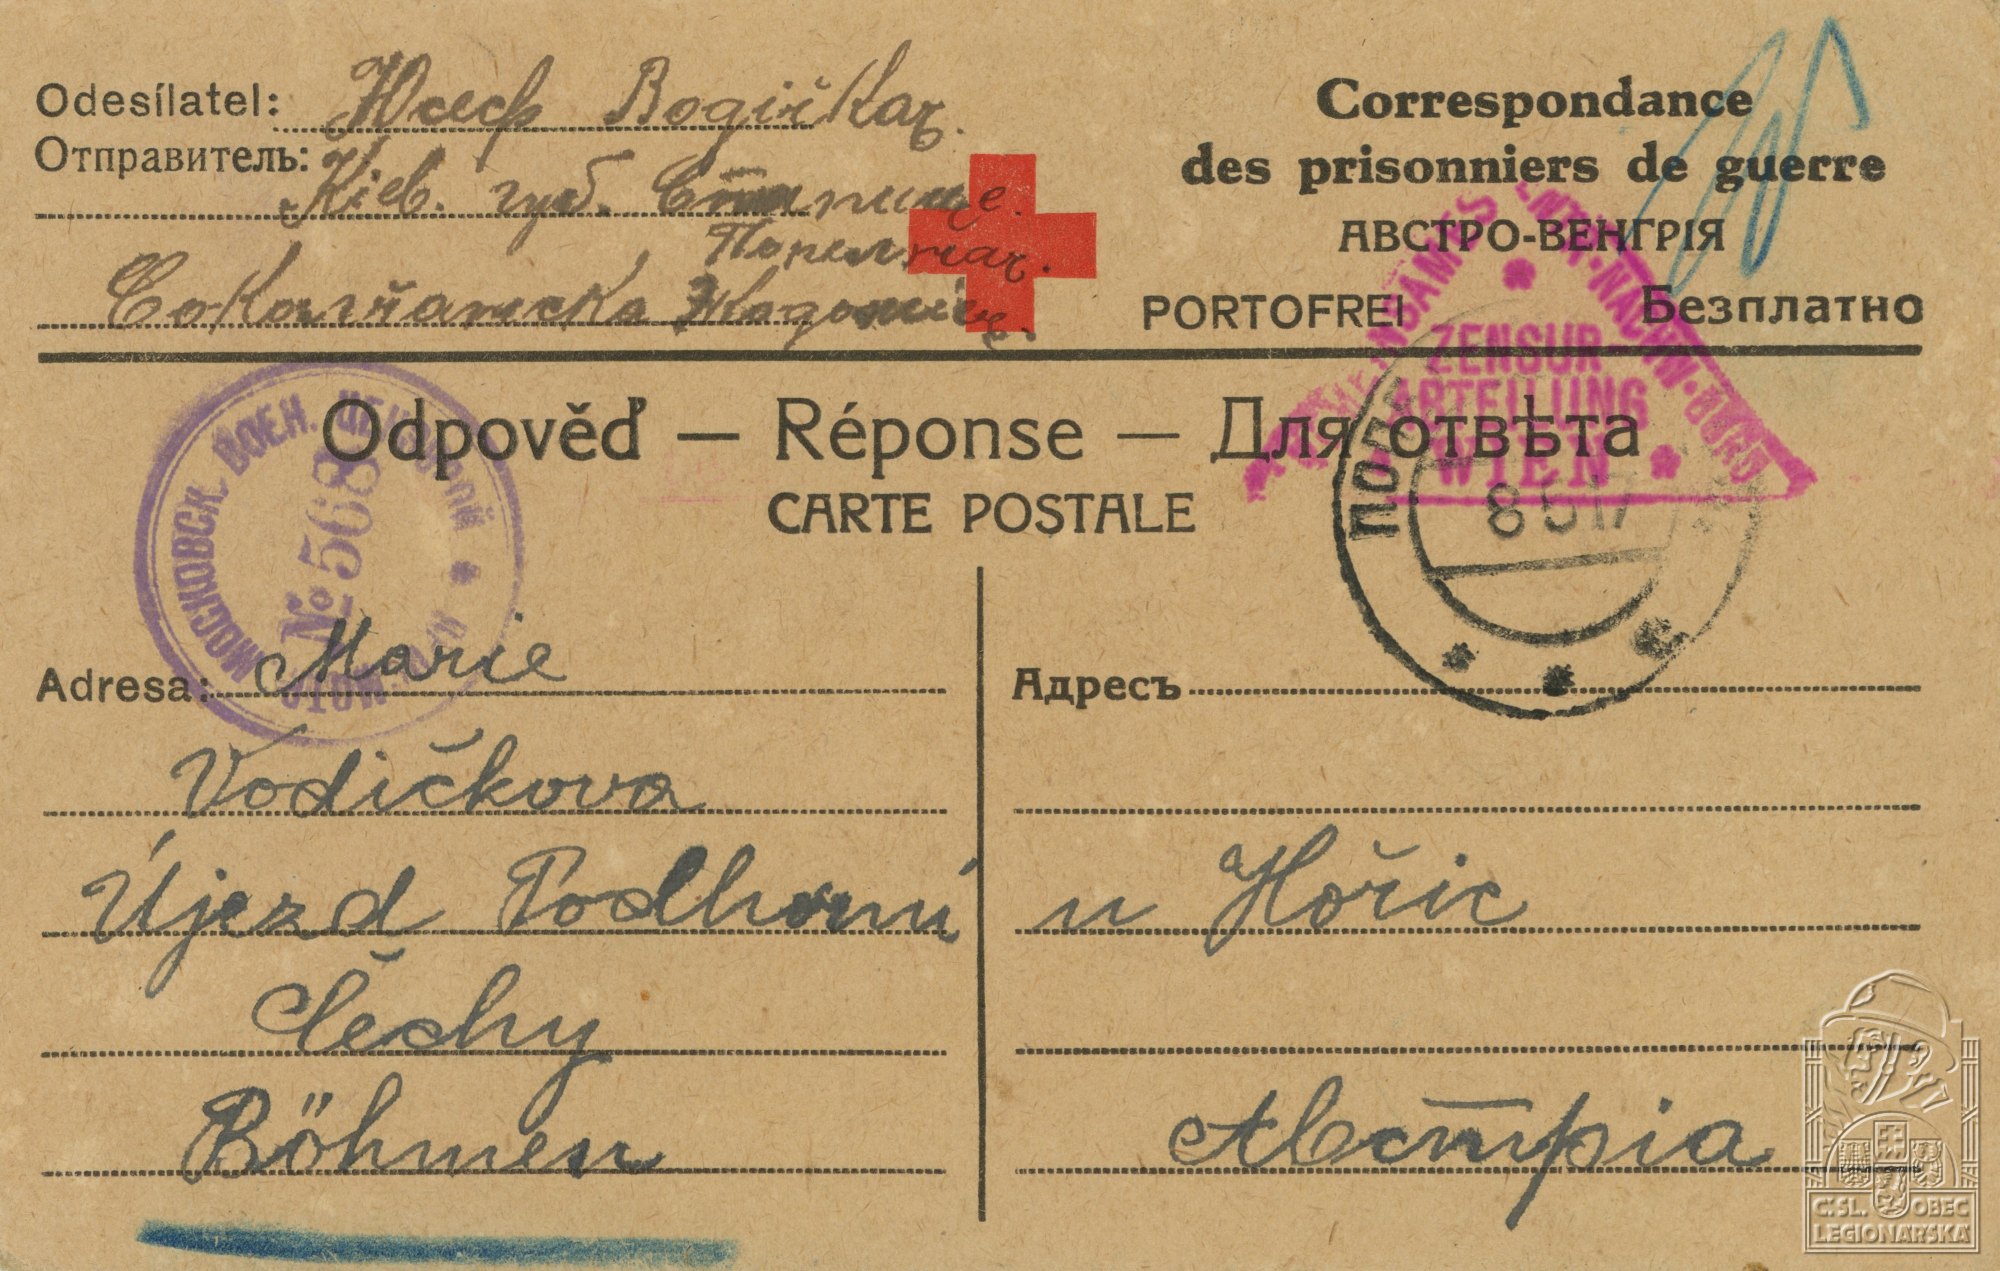 Odesílatel:
Отправитель:
Юсеф Водичкаг.
Кіев. губ.
Correspondance
des prisonniers de guerre
АВСТРО-ВЕНГРІЯ
PORTOFREI Безплатно
Odpověď — Réponse — Для отвѣта
CARTE POSTALE
МОСКОВСК. ВОЕН. ЦЕНЗУРНЫЙ
№ 568
ZENSUR-
ABTEILUNG
WIEN
8 5 17
Adresa: Marie
Vodičkova
Újezd Podhorní
Čechy
Böhmen
Адресъ
u Hořic
Австрія
ČSL. OBEC
LEGIONÁŘSKÁ